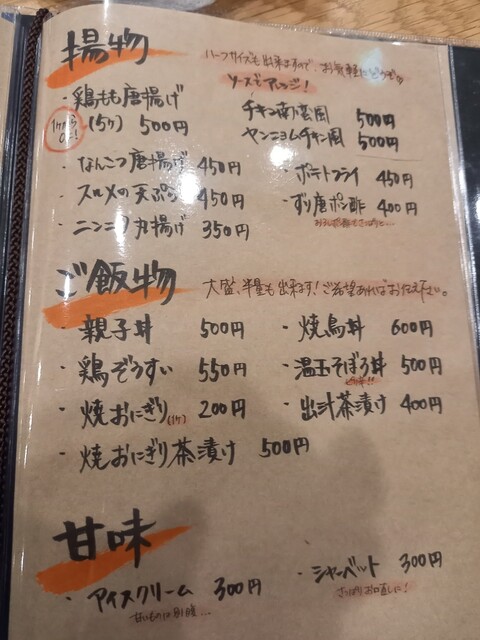 揚物
ハーフサイズも出来ますので、お気軽にどうぞ。
ソースでアレンジ!
・鶏もも唐揚げ
1ケから OK!
(5ケ) 500円
チキン南蛮風 500円
ヤンニョムチキン風 500円
・なんこつ唐揚げ 450円
・ポテトフライ 450円
・スルメの天ぷら 450円
・ずり唐ポン酢 400円
・ニンニク丸揚げ 350円
ご飯物
大盛、半量も出来ます!ご希望あればお伝え下さい。
・親子丼 500円
・焼鳥丼 600円
・鶏ぞうすい 550円
・温玉そぼろ丼 500円
・焼おにぎり(1ケ) 200円
・出汁茶漬け 400円
・焼おにぎり茶漬け 500円
甘味
・アイスクリーム 300円
甘いものは別腹…
・シャーベット 300円
さっぱりお口直しに!